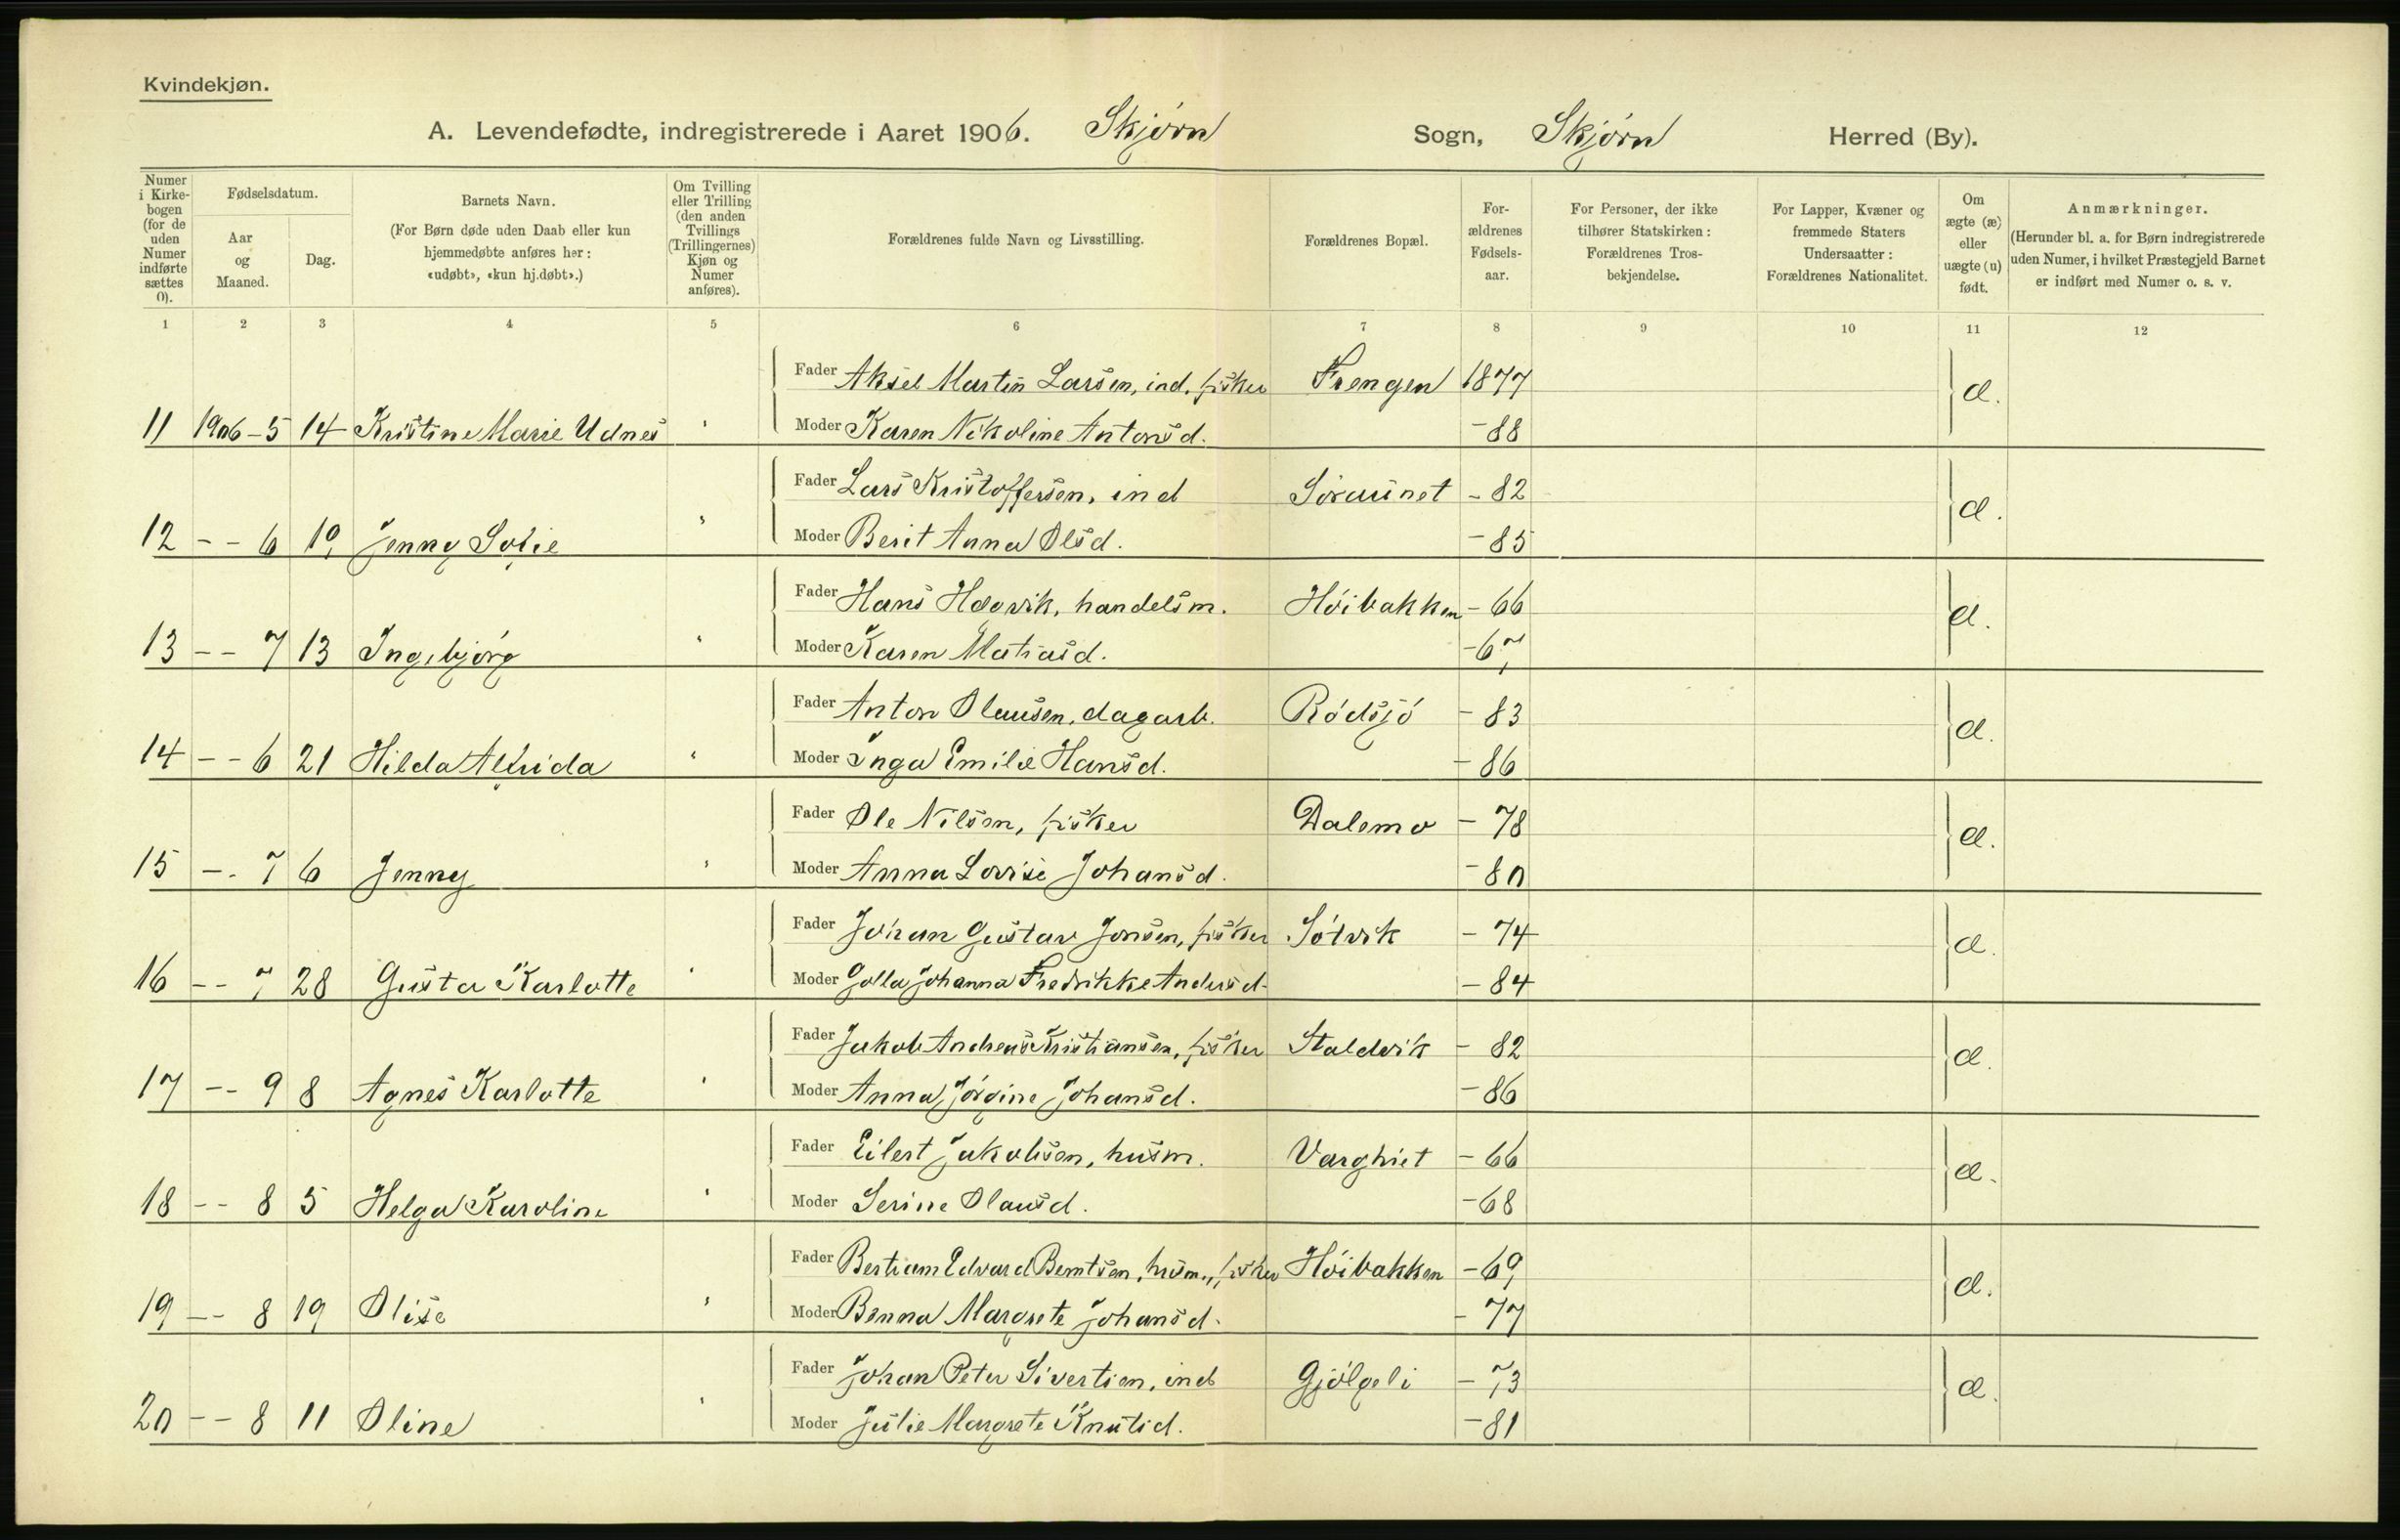 Kvindekjøn.
A. Levendefødte, indregistrerede i Aaret 1906. Skjørn Sogn, Skjørn Herred (By).
Numer i Kirke-bogen (for de uden Numer indførte sættes 0).
Fødselsdatum.
Aar og Maaned.
Dag.
Barnets Navn.
(For Børn døde uden Daab eller kun hjemmedøbte anføres her: «udøbt», «kun hj.døbt».)
Om Tvilling eller Trilling (den anden Tvillings (Trillingernes) Kjøn og Numer anføres).
Forældrenes fulde Navn og Livsstilling.
Forældrenes Bopæl.
For-ældrenes Fødsels-aar.
For Personer, der ikke tilhører Statskirken: Forældrenes Tros-bekjendelse.
For Lapper, Kvæner og fremmede Staters Undersaatter: Forældrenes Nationalitet.
Om ægte (æ) eller uægte (u) født.
Anmærkninger.
(Herunder bl. a. for Børn indregistrerede uden Numer, i hvilket Præstegjeld Barnet er indført med Numer o. s. v.
1 2 3 4 5 6 7 8 9 10 11 12
Fader Aksel Martin Larsen, ind. fisker Frengen 1877 æ.
11 1906-5 14 Kristine Marie Udnes " Moder Karen Nikoline Antonsd. -88
Fader Lars Kristoffersen, ind Søraunet -82 æ.
12 -- 6 10 Jenny Sofie " Moder Berit Anna Olsd. -85
Fader Hans Høgvik, handelsm. Høibakken -66 æ.
13 -- 7 13 Ingebjørg " Moder Karen Matiasd. -67
Fader Anton Olausen, dagarb. Rødsjø -83 æ.
14 -- 6 21 Hilda Alfrida " Moder Inga Emilie Hansd. -86
Fader Ole Nilsen, fisker Dalemo -78 æ.
15 -- 7 6 Jenny " Moder Anna Lovise Johansd. -80
Fader Johan Gustav Jonsen, fisker Søtvik -74 æ.
16 -- 7 28 Gusta Karlotte " Moder Golla Johanna Fredrikke Andersd. -84
Fader Jakob Andreas Kristiansen, fisker Staldvik -82 æ.
17 -- 9 8 Agnes Karlotte " Moder Anna Jørgine Johansd. -86
Fader Eilert Jakobsen, husm. Varghiet -66 æ.
18 -- 8 5 Helga Karoline " Moder Serine Olausd. -68
Fader Bertiam Edvard Berntsen, husm., fisker Høibakken -69 æ.
19 -- 8 19 Olise " Moder Benna Margrete Johansd. -77
Fader Johan Peter Sivertsen, ind Gjølgeli -73 æ.
20 -- 8 11 Oline " Moder Julie Margrete Knutsd. -81